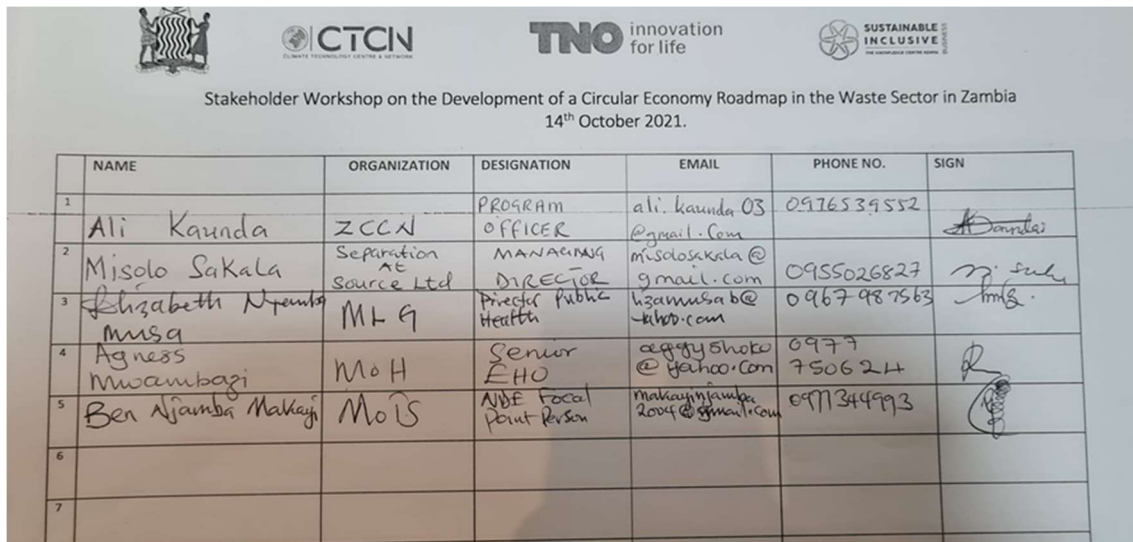 CTCN
CLIMATE TECHNOLOGY CENTRE & NETWORK
TNO innovation
for life
SUSTAINABLE
INCLUSIVE
BUSINESS
THE KNOWLEDGE CENTRE KENYA
Stakeholder Workshop on the Development of a Circular Economy Roadmap in the Waste Sector in Zambia
14th October 2021.
NAME ORGANIZATION DESIGNATION EMAIL PHONE NO. SIGN
1 Ali Kaunda ZCCN PROGRAM OFFICER ali.kaunda 03 @gmail.com 0976539552
2 Misolo Sakala Separation At Source Ltd MANAGING DIRECTOR misolosakala@ gmail.com 0955026827
3 Elizabeth musa MLG Director Public Health lizamusab@ yahoo.com
4 Agness Mwambazi MoH Senior EHO aggyshoko @yahoo.com 0977 750624
5 Ben Njamba Makayi MoTS NDE Focal Point Person makayinjamba 2004@gmail.com 0977344993
6
7